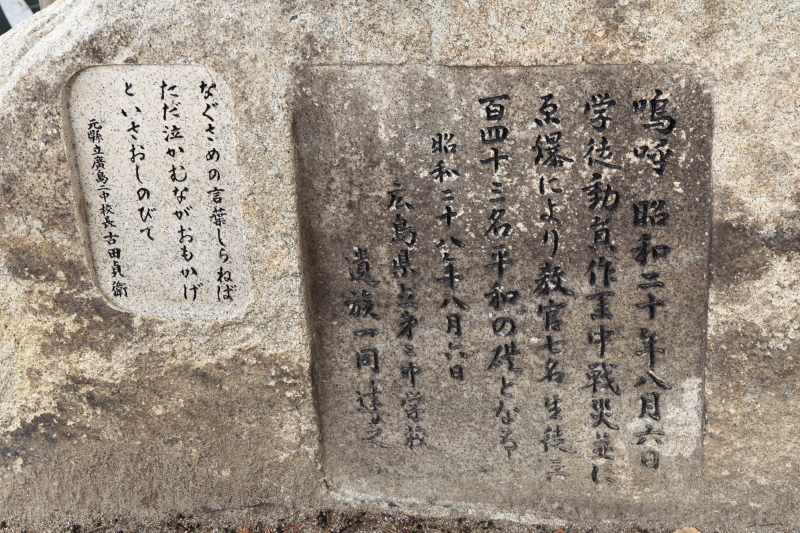 嗚呼 昭和二十年八月六日
学徒動員作業中戦災並に
原爆により教官七名生徒三
百四十三名平和の礎となる
昭和二十八年八月六日
広島県立第二中学校
遺族一同建之
なぐさめの言葉しらねば
たゞ泣かむながおもかげ
といさおしのびて
元縣立廣島二中校長 古田貞衛